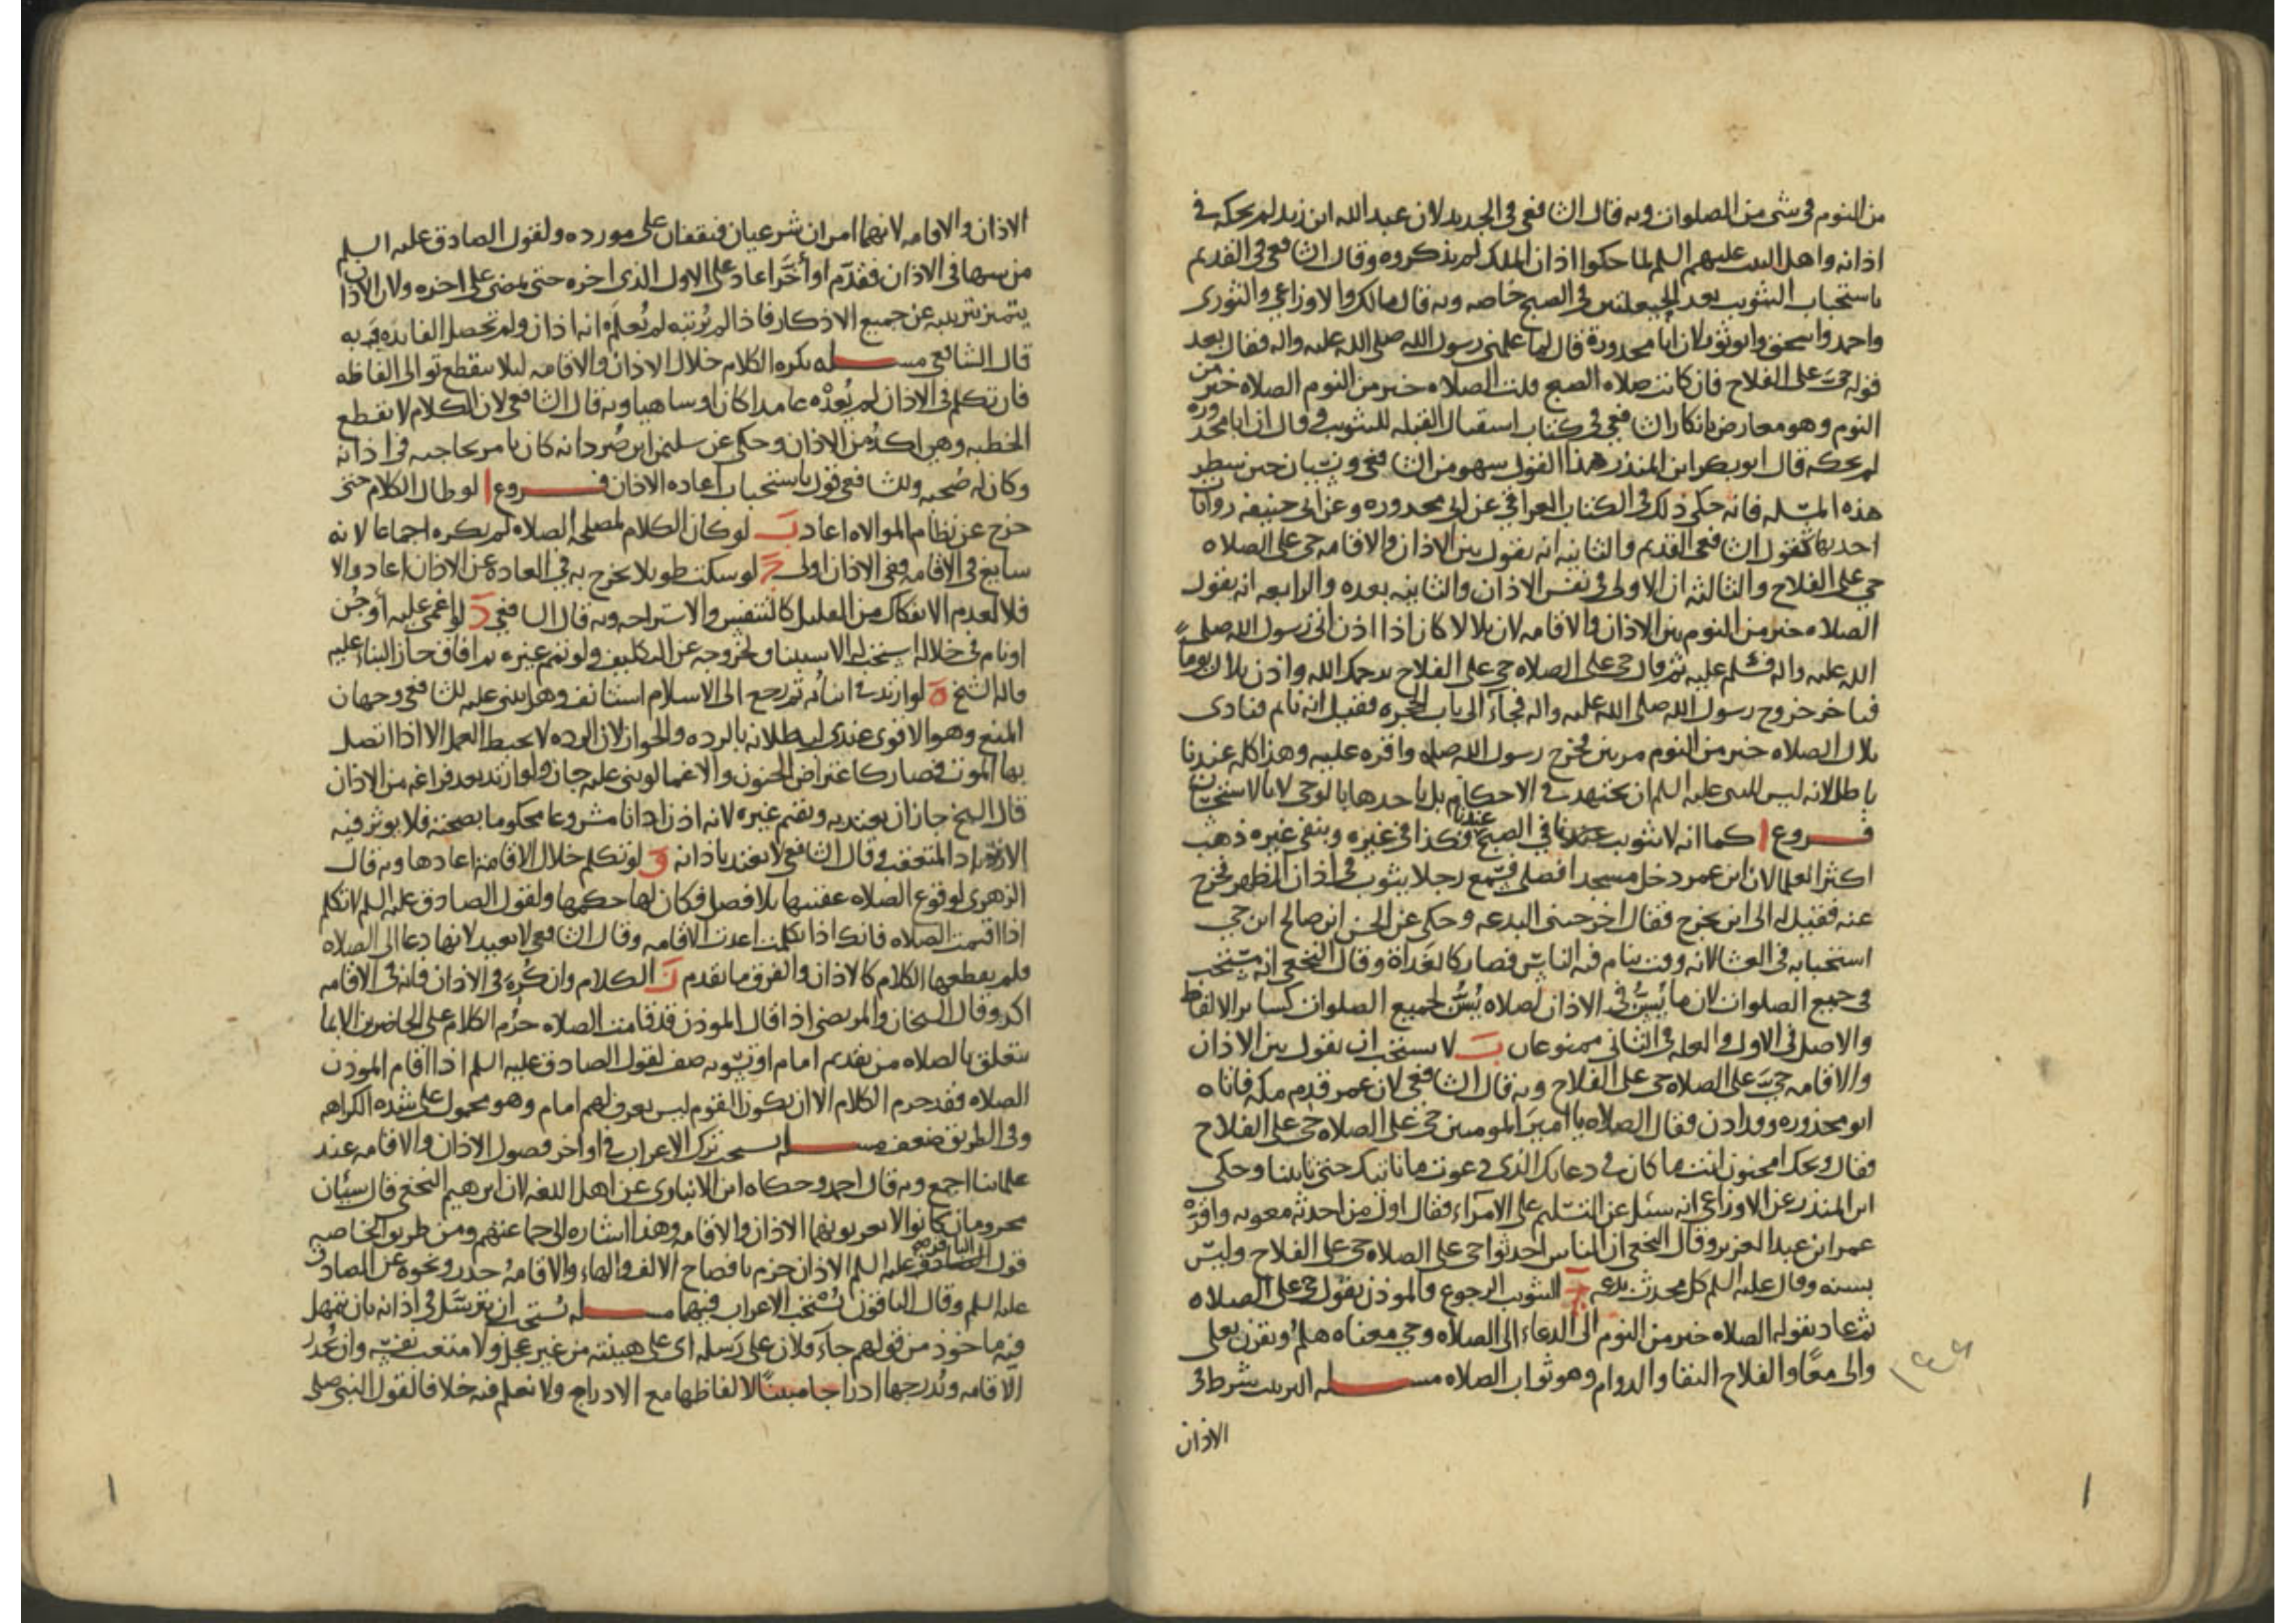 من النوم في شي من الصلوات وبه قال الشافعي في الجديد لان عبد الله ابن زيد لم يحكه في
اذانه واهل البيت عليهم السلم لما حكوا اذان الملك لم يذكروه وقال الشافعي في القديم
باستحباب التثويب بعد الحيعلتين في الصبح خاصه وبه قال مالك والاوزاعي والثوري
واحمد واسحق وابو ثور لان ابا محذورة قال لما علمني رسول الله صلى الله عليه واله فقال بعد
قوله حي على الفلاح فان كانت صلاه الصبح قلت الصلاه خير من النوم الصلاه خير من
النوم وهو معارض بانكار الشافعي في كتاب استقبال القبله للتثويب وقال ان ابا محذوره
لم يحكه قال ابو بكر ابن المنذر هذا القول سهو من الشافعي ونسيان حين سطر
هذه المسله فانه حكى ذلك في الكتاب العراقي عن ابي محذوره وعن ابي حنيفه روايات
احديها كقول الشافعي القديم والثانيه انه يقول بين الاذان والاقامه حي على الصلاه
حي على الفلاح والثالثه ان الاولى في نفس الاذان والثانيه بعده والرابعه انه يقول
الصلاه خير من النوم بين الاذان والاقامه لان بلالا كان اذا اذن اتى رسول الله صلى
الله عليه واله فسلم عليه ثم قال حي على الصلاه حي على الفلاح يرحمك الله واذن بلال يوما
فتاخر خروج رسول الله صلى الله عليه واله فجآء الى باب الحجره فقيل انه نايم فنادى
بلال الصلاه خير من النوم مرتين فخرج رسول الله صله واقره عليه وهذا كله عندنا
باطل لانه ليس للنبي عليه السلم ان يجتهد في الاحكام بل ياخذها بالوحي لا بالاستحسان
فروع ا كما انه لا تثويب عندنا في الصبح فكذا في غيره وبنفي غيره ذهب
اكثر العلما لان ابن عمر دخل مسجدا فصلى فسمع رجلا يثوب في اذان الظهر فخرج
عنه فقيل له الى اين تخرج فقال اخرجتني البدعه وحكي عن الحسن ابن صالح ابن حي
استحبابه في العشا لانه وقت ينام فيه الناس فصار كالغداة وقال النخعي انه مستحب
في جميع الصلوات لان ما يُسنّ في الاذان لصلاه يُسنّ لجميع الصلوات كساير الالفاظ
والاصل في الاول والعله في الثاني ممنوعان ب لا يستحب ان يقول بين الاذان
والاقامه حي على الصلاه حي على الفلاح وبه قال الشافعي لان عمر قدم مكه فاتاه
ابو محذوره وقد اذن فقال الصلاه يا امير المومنين حي على الصلاه حي على الفلاح
فقال ويحك امجنون انت ما كان في دعايك الذي دعوت ما ناتيك حتى تاتينا وحكى
ابن المنذر عن الاوزاعي انه سئل عن التسليم على الامرآء فقال اول من احدثه معويه واقره
عمر ابن عبد العزيز وقال النخعي ان الناس احدثوا حي على الصلاه حي على الفلاح وليس
بسنه وقال عليه السلم كل محدث بدعه ج التثويب الرجوع فالموذن يقول حي على الصلاه
ثم عاد بقوله الصلاه خير من النوم الى الدعاء الى الصلاه وحي معناه هلم ويقرن بعلى
والى معًا والفلاح البقا والدوام وهو ثواب الصلاه مسله الترتيب شرط في
الاذان
الاذان والاقامه لانهما امران شرعيان فيقفان على مورده ولقول الصادق عليه السلم
من سها في الاذان فقدّم او أخّر اعاد على الاول الذي اخره حتى يمضي على اخره ولان الاذان
يتميز بترتيبه عن جميع الاذكار فاذا لم يُرتبه لم يُعلم انه اذان ولم تحصل الفايده وبه
قال الشافعي مسله يكره الكلام خلال الاذان والاقامه ليلا ينقطع توالي الفاظه
فان تكلم في الاذان لم يُعدْه عامدا كان او ساهيا وبه قال الشافعي لان الكلام لا يقطع
الخطبه وهي اكدُ من الاذان وحكي عن سليمن ابن صُرد انه كان يامر بحاجته في اذانه
وكان له صُحبه وللشافعي قول باستحباب اعاده الاذان فروع ا لو طال الكلام حتى
خرج عن نظام الموالاه اعاد ب لو كان الكلام لمصلحه الصلاه لم يكره اجماعا لانه
سايغ في الاقامه ففي الاذان اولى ج لو سكت طويلا يخرج به في العادة عن الاذان اعاد والا
فلا لعدم الانفكاك من القليل كالتنفيس والاستراحه وبه قال الشافعي د لو اغمي عليه او جُن
او نام في خلاله استحب له الاستيناف لخروجه عن التكليف ولو تمم غيره ثم افاق جاز البناء عليه
قاله الشيخ ه لو ارتد في اثنائه ثم رجع الى الاسلام استانف وهل يبني عليه للشافعي وجهان
المنع وهو الاقوى عندي لبطلانه بالرده والجواز لان الرده لا تحبط العمل الا اذا اتصل
بها الموت فصار كاعتراض الجنون والاغما لو بني عليه جاز ولو ارتد بعد فراغه من الاذان
قال الشيخ جاز ان يعتد به ويقيم غيره لانه اذن اذانا مشروعا محكوما بصحته فلا يوثر فيه
الارتداد المتعقب وقال الشافعي لا يعتد باذانه و لو تكلم خلال الاقامة اعادها وبه قال
الزهري لوقوع الصلاه عقيبها بلا فصل فكان لها حكمها ولقول الصادق عليه السلم لا تتكلم
اذا اقيمت الصلاه فانك اذا تكلمت اعدت الاقامه وقال الشافعي لا يعيد لانها دعا الى الصلاه
فلم يقطعها الكلام كالاذان والفرق ما تقدم ز الكلام وان كُره في الاذان فانه في الاقامه
اكد وقال الشيخان والمرتضى اذا قال الموذن قد قامت الصلاه حرُم الكلام على الحاضرين الا بما
يتعلق بالصلاه من تقديم امام او تسويه صف لقول الصادق عليه السلم اذا اقام الموذن
الصلاه فقد حرم الكلام الا ان يكون القوم ليس يعرف لهم امام وهو محمول على شده الكراهه
وفي الطريق ضعف مسله يستحب ترك الاعراب في اواخر فصول الاذان والاقامه عند
علمائنا اجمع وبه قال احمد وحكاه ابن الانباري عن اهل اللغه لان ابرهيم النخعي قال شيئان
مجزومان كانوا لا يعربونهما الاذان والاقامه وهذا اشاره الى جماعتهم ومن طريق الخاصه
قول الباقر عليه السلم الاذان جزم بافصاح الالف والهاء والاقامهُ حدر ونحوه عن الصادق
عليه السلم وقال الباقون يُستحب الاعراب فيهما مسله يُستحب ان يترسّل في اذانه بان يتمهل
فيه ماخوذ من قولهم جآء فلان على رَسله اي على هينته من غير عجل ولا متعب نفسه وان يحدر
الاقامه ويُدرجها ادراجا مبينًا لالفاظها مع الادراج ولا نعلم فيه خلافا لقول النبي صلى